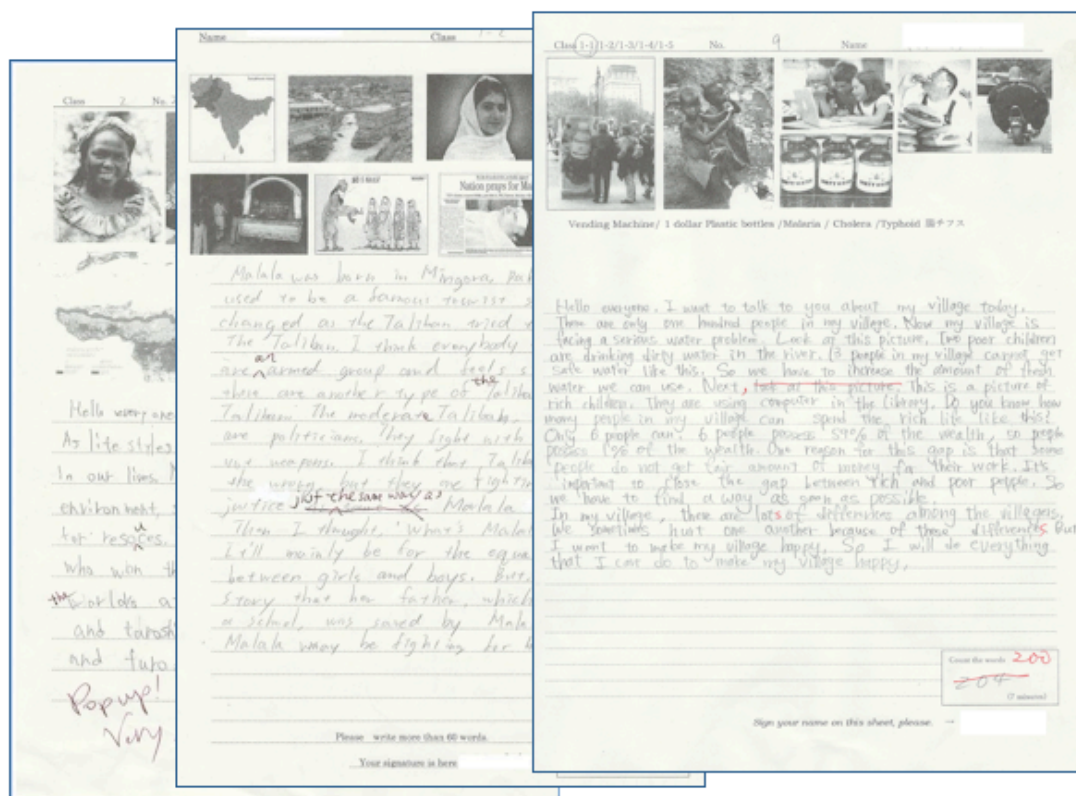 Class 2 No.
Hello everyone
As life styles
In our lives,
environment,
for resources.
who won th
the worlds a
and
and furo
Pop up!
Very
Name Class 1-2
Nation prays for Ma
Malala was born in Mingora, Pak
used to be a famous tourist s
changed as the Taliban tried
The Taliban. I think everybody
are an armed group and feels s
there are another type of the Taliba
Taliban. The moderate Taliban,
are politicians. They fight with
not weapons. I think that Talib
the wrong, but they are fightin
justice just the same way as Malala
Then I thought, 'What's Malal
It'll mainly be for the equa
between girls and boys. But,
story that her father, which
a school, was saved by Mala
Malala may be fighting for
Please write more than 60 words.
Your signature is here
Class 1-1/1-2/1-3/1-4/1-5 No. 9 Name
Vending Machine/ 1 dollar Plastic bottles /Malaria / Cholera /Typhoid 腸チフス
Hello everyone. I want to talk to you about my village today.
There are only one hundred people in my village. Now my village is
facing a serious water problem. Look at this picture. Two poor children
are drinking dirty water in the river. 13 people in my village cannot get
safe water like this. So we have to increase the amount of fresh
water we can use. Next, look at this picture. This is a picture of
rich children. They are using computer in the library. Do you know how
many people in my village can spend the rich life like this?
Only 6 people can. 6 people possess 59% of the wealth, so people
possess % of the wealth. One reason for this gap is that some
people do not get fair amount of money for their work. It's
important to close the gap between rich and poor people. So
we have to find a way as soon as possible.
In my village, there are lots of differences among the villagers.
We sometimes hurt one another because of these differences But
I want to make my village happy. So I will do everything
that I can do to make my village happy.
Count the words 200
204
(7 minutes)
Sign your name on this sheet, please. →